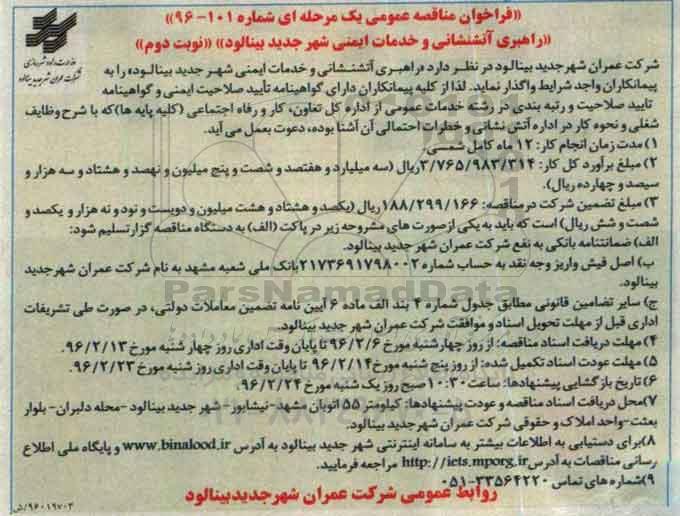 «فراخوان مناقصه عمومی یک مرحله ای شماره ۱۰۱-۹۶»
«راهبری آتشنشانی و خدمات ایمنی شهر جدید بینالود» «نوبت دوم»
وزارت راه و شهرسازی
شرکت عمران شهر جدید بینالود
شرکت عمران شهر جدید بینالود در نظر دارد «راهبری آتشنشانی و خدمات ایمنی شهر جدید بینالود» را به
پیمانکاران واجد شرایط واگذار نماید. لذا از کلیه پیمانکاران دارای گواهینامه تأیید صلاحیت ایمنی و گواهینامه
تایید صلاحیت و رتبه بندی در رشته خدمات عمومی از اداره کل تعاون، کار و رفاه اجتماعی (کلیه پایه ها) که با شرح وظایف
شغلی و نحوه کار در اداره آتش نشانی و خطرات احتمالی آن آشنا بوده، دعوت بعمل می آید.
۱) مدت زمان انجام کار: ۱۲ ماه کامل شمسی.
۲) مبلغ برآورد کل کار: ۳/۷۶۵/۹۸۳/۳۱۴ ریال (سه میلیارد و هفتصد و شصت و پنج میلیون و نهصد و هشتاد و سه هزار و
سیصد و چهارده ریال).
۳) مبلغ تضمین شرکت در مناقصه: ۱۸۸/۲۹۹/۱۶۶ ریال (یکصد و هشتاد و هشت میلیون و دویست و نود و نه هزار و یکصد و
شصت و شش ریال) است که باید به یکی از صورت های مشروحه زیر در پاکت (الف) به دستگاه مناقصه گزار تسلیم شود:
الف) ضمانتنامه بانکی به نفع شرکت عمران شهر جدید بینالود.
ب) اصل فیش واریز وجه نقد به حساب شماره ۲۱۷۳۶۹۱۷۹۸۰۰۲ بانک ملی شعبه مشهد به نام شرکت عمران شهر جدید
بینالود.
ج) سایر تضامین قانونی مطابق جدول شماره ۴ بند الف ماده ۶ آیین نامه تضمین معاملات دولتی، در صورت طی تشریفات
اداری قبل از مهلت تحویل اسناد و موافقت شرکت عمران شهر جدید بینالود.
۴) مهلت دریافت اسناد مناقصه: از روز چهارشنبه مورخ ۹۶/۲/۶ تا پایان وقت اداری روز چهار شنبه مورخ ۹۶/۲/۱۳.
۵) مهلت عودت اسناد تکمیل شده: از روز پنج شنبه مورخ ۹۶/۲/۱۴ تا پایان وقت اداری روز شنبه مورخ ۹۶/۲/۲۳.
۶) تاریخ بازگشایی پیشنهادها: ساعت ۱۰:۳۰ صبح روز یک شنبه مورخ ۹۶/۲/۲۴.
۷) محل دریافت اسناد مناقصه و عودت پیشنهادها: کیلومتر ۵۵ اتوبان مشهد-نیشابور- شهر جدید بینالود -محله دلبران- بلوار
بعثت-واحد املاک و حقوقی شرکت عمران شهر جدید بینالود.
۸) برای دستیابی به اطلاعات بیشتر به سامانه اینترنتی شهر جدید بینالود به آدرس www.binalood.ir و پایگاه ملی اطلاع
رسانی مناقصات به آدرس http://iets.mporg.ir مراجعه فرمایید.
۹) شماره های تماس ۳۳۵۶۴۲۲۰-۰۵۱
روابط عمومی شرکت عمران شهر جدید بینالود
۹۶۰۱۹۷۰۳/ش
ParsNamadData